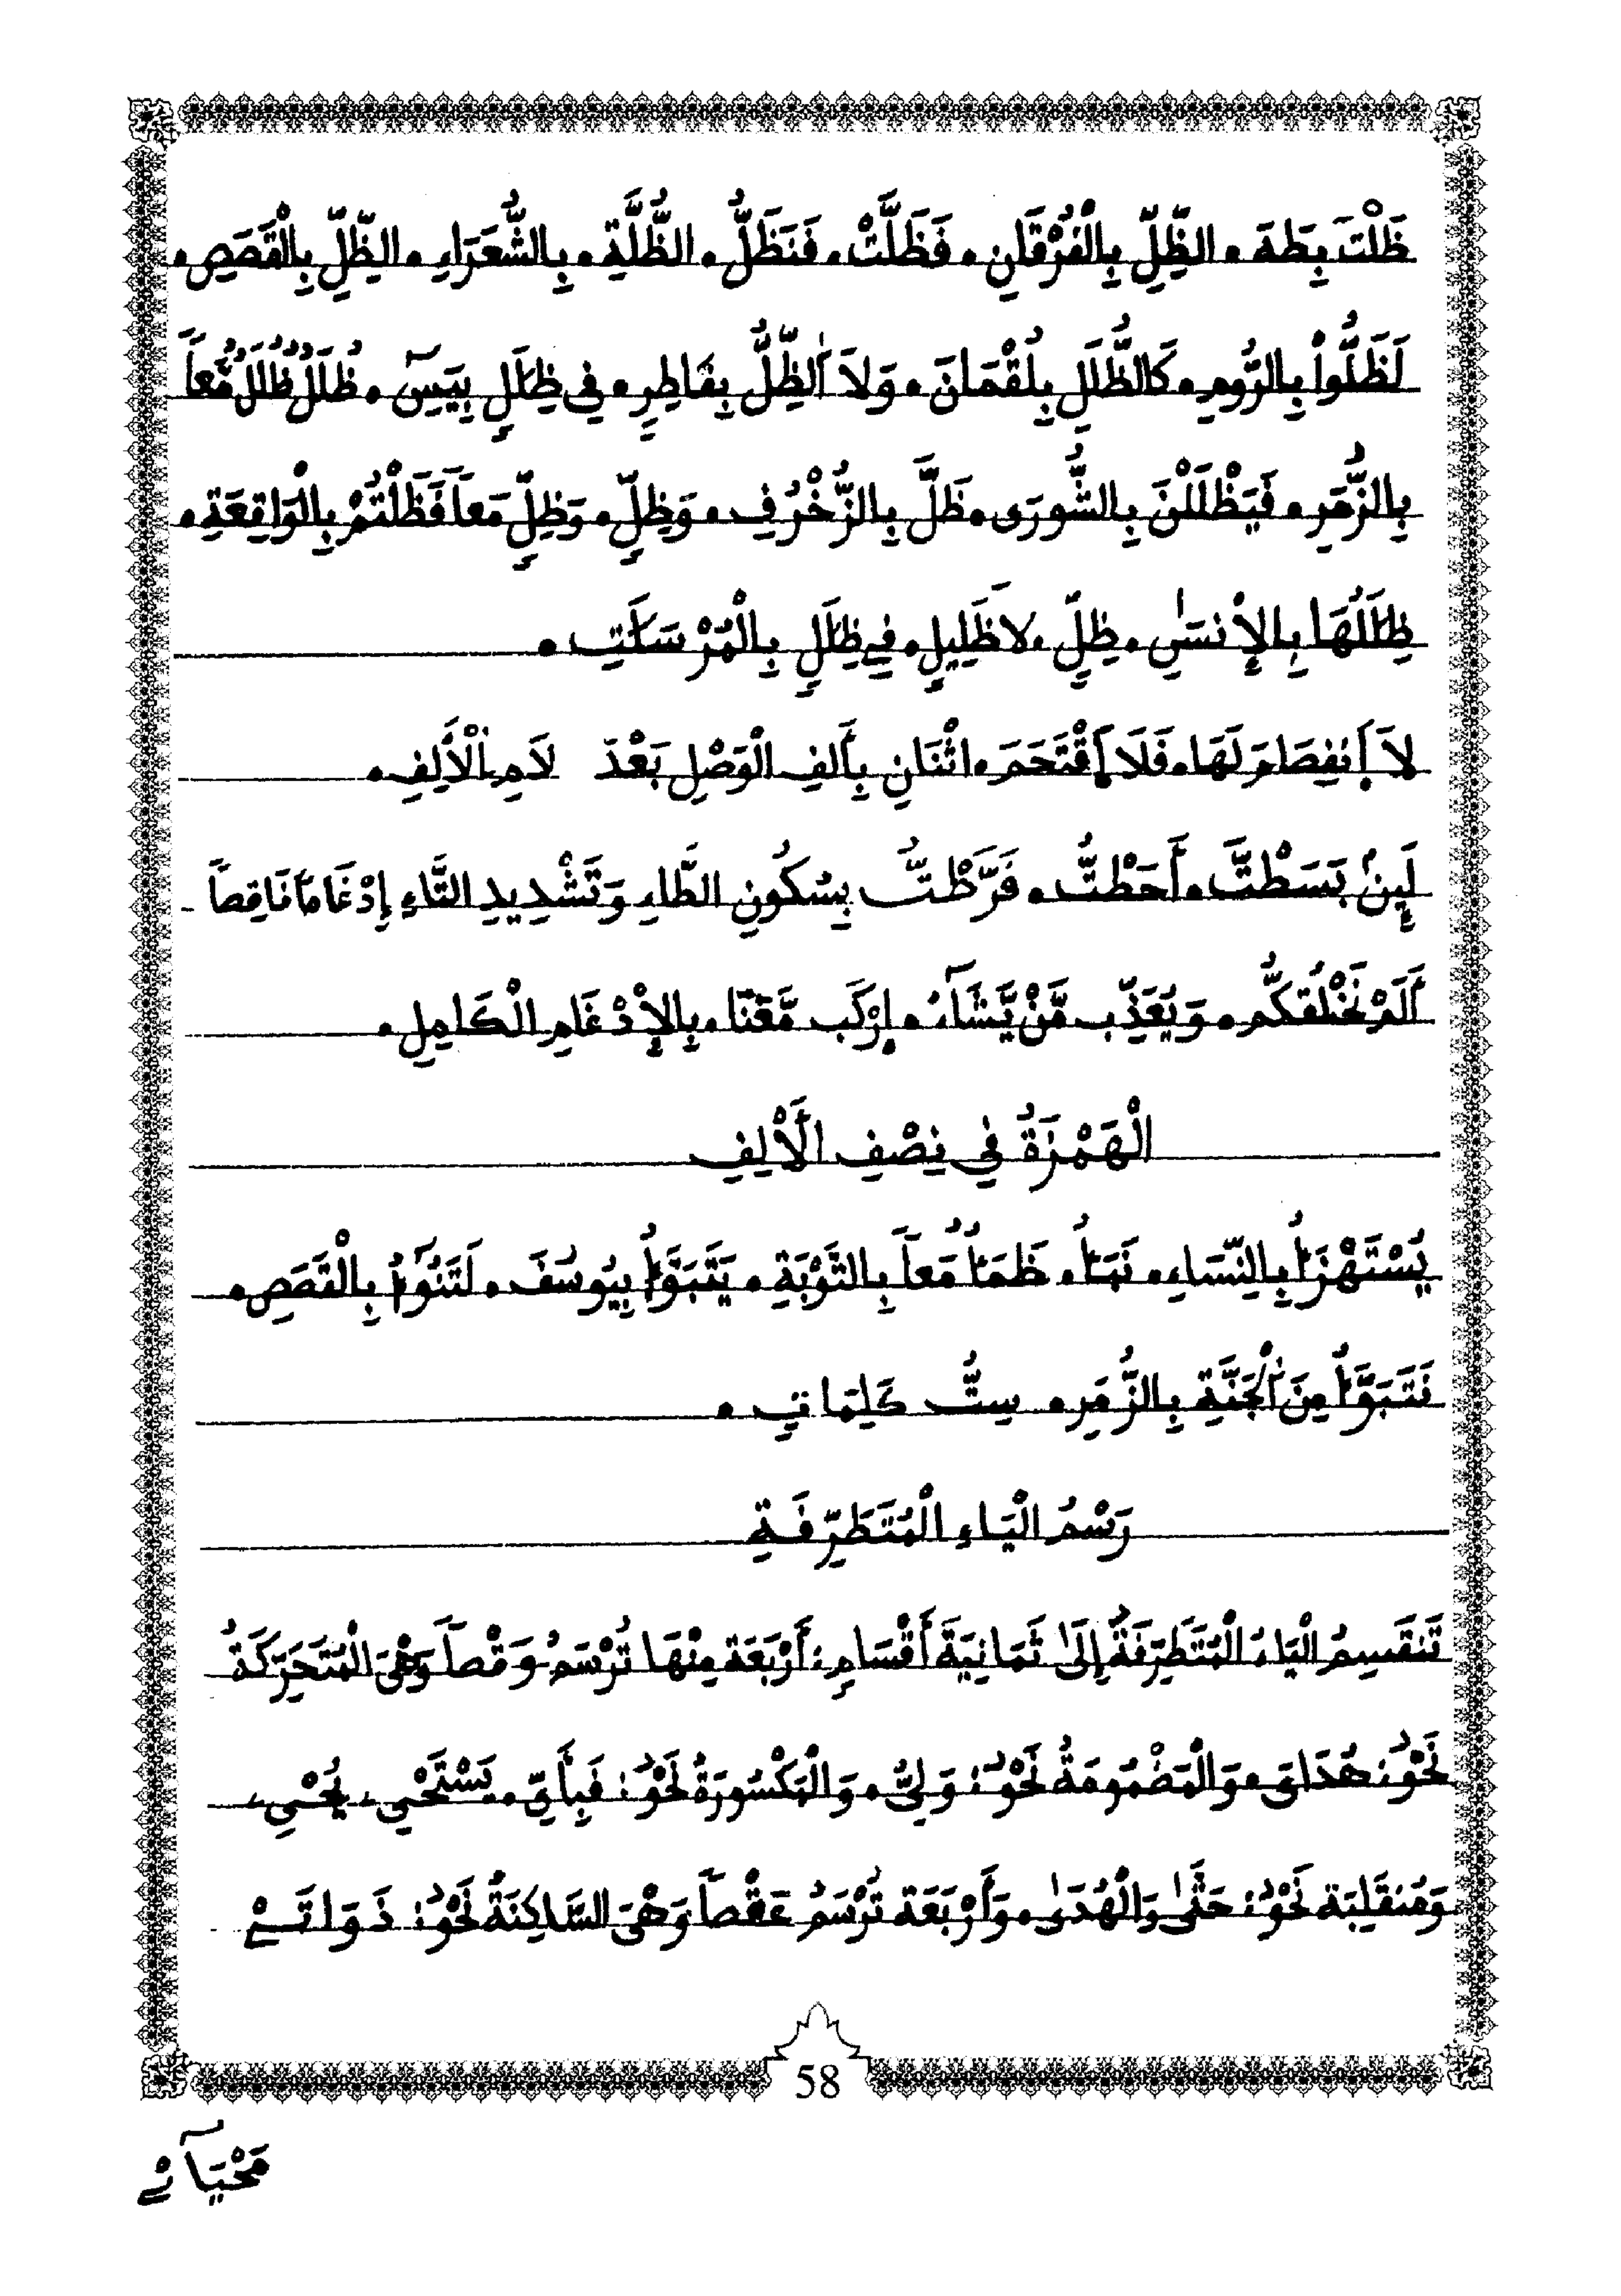 ظَلْتَ بِطَهَ . الظِّلِّ بِالْفُرْقَانِ . فَظَلَّتْ . فَنَظَلُّ . الظُّلَّةِ . بِالشُّعَرَاءِ . الظِّلِّ بِالْقَصَصِ .
لَظَلُّواْ بِالرُّومِ . كَالظُّلَلِ بِلُقْمَانَ . وَلاَ اَ۬لظِّلُّ بِفَاطِرٍ . فِي ظِلَٰلٍ بِيَسِٓ . ظُلَلٌ ظُلَلٌ مَّعاً
بِالزُّمَرِ . فَيَظْلَلْنَ بِالشُّورَى . ظَلَّ بِالزُّخْرُفِ . وَظِلٍّ . وَظِلٍّ مَعاً فَظَلْتُمْ بِالْوَاقِعَةِ .
ظِلَٰلُهَا بِالإِنسَٰنِ . ظِلٍّ . لاَ ظَلِيلٍ . فِے ظِلَٰلٍ بِالْمُرْسَلَٰتِ .
لاَ اَ۪نفِصَامَ لَهَا . فَلاَ اَ۪قْتَحَمَ . اثْنَانِ بِأَلِفِ الْوَصْلِ بَعْدَ لاَمِ اِ۬لْأَلِفِ .
لَئِنۢ بَسَطْتَّ . أَحَطْتُّ . فَرَّطْتُّ بِسُكُونِ الطَّاءِ وَتَشْدِيدِ التَّاءِ إِدْغَاماً نَاقِصاً
أَلَمْ نَخْلُقكُّم . وَيُعَذِّب مَّنْ يَّشَآءُ . اِرْكَب مَّعَنَا . بِالإِدْغَامِ الْكَامِلِ .
الْهَمْزَةُ فِي نِصْفِ الْأَلِفِ
يُسْتَهْزَأُ بِالنِّسَاءِ . نَبَأُ . ظَمَأٌ مَعاً بِالتَّوْبَةِ . يَتَبَوَّأُ بِيُوسُفَ . لَتَنُوٓأُ بِالْقَصَصِ .
نَتَبَوَّأُ مِنَ اَ۬لْجَنَّةِ بِالزُّمَرِ . سِتُّ كَلِمَاتٍ .
رَسْمُ الْيَاءِ الْمُتَطَرِّفَةِ
تَنقَسِمُ الْيَاءُ الْمُتَطَرِّفَةُ إِلَىٰ ثَمَانِيَةَ أَقْسَامٍ : أَرْبَعَة مِنْهَا تُرْسَمُ وَقْصاً وَهْىَ الْمُتَحَرِّكَةُ
نَحْوُ : هُدَاىَ . وَالْمَضْمُومَةُ نَحْوُ : وَلِىُّ . وَالْمَكْسُورَةُ نَحْوُ : فَبِأَىِّ . يَسْتَحْيِ ، يُحْيِ ،
وَمُنقَلِبَة نَحْوُ : حَتَّىٰ وَالْهُدَىٰ . وَأَرْبَعَة تُرْسَمُ عَقْصاً وَهْىَ السَّاكِنَةُ نَحْوُ : ذَوَاتَےْ
58
مَحْيَآےْ